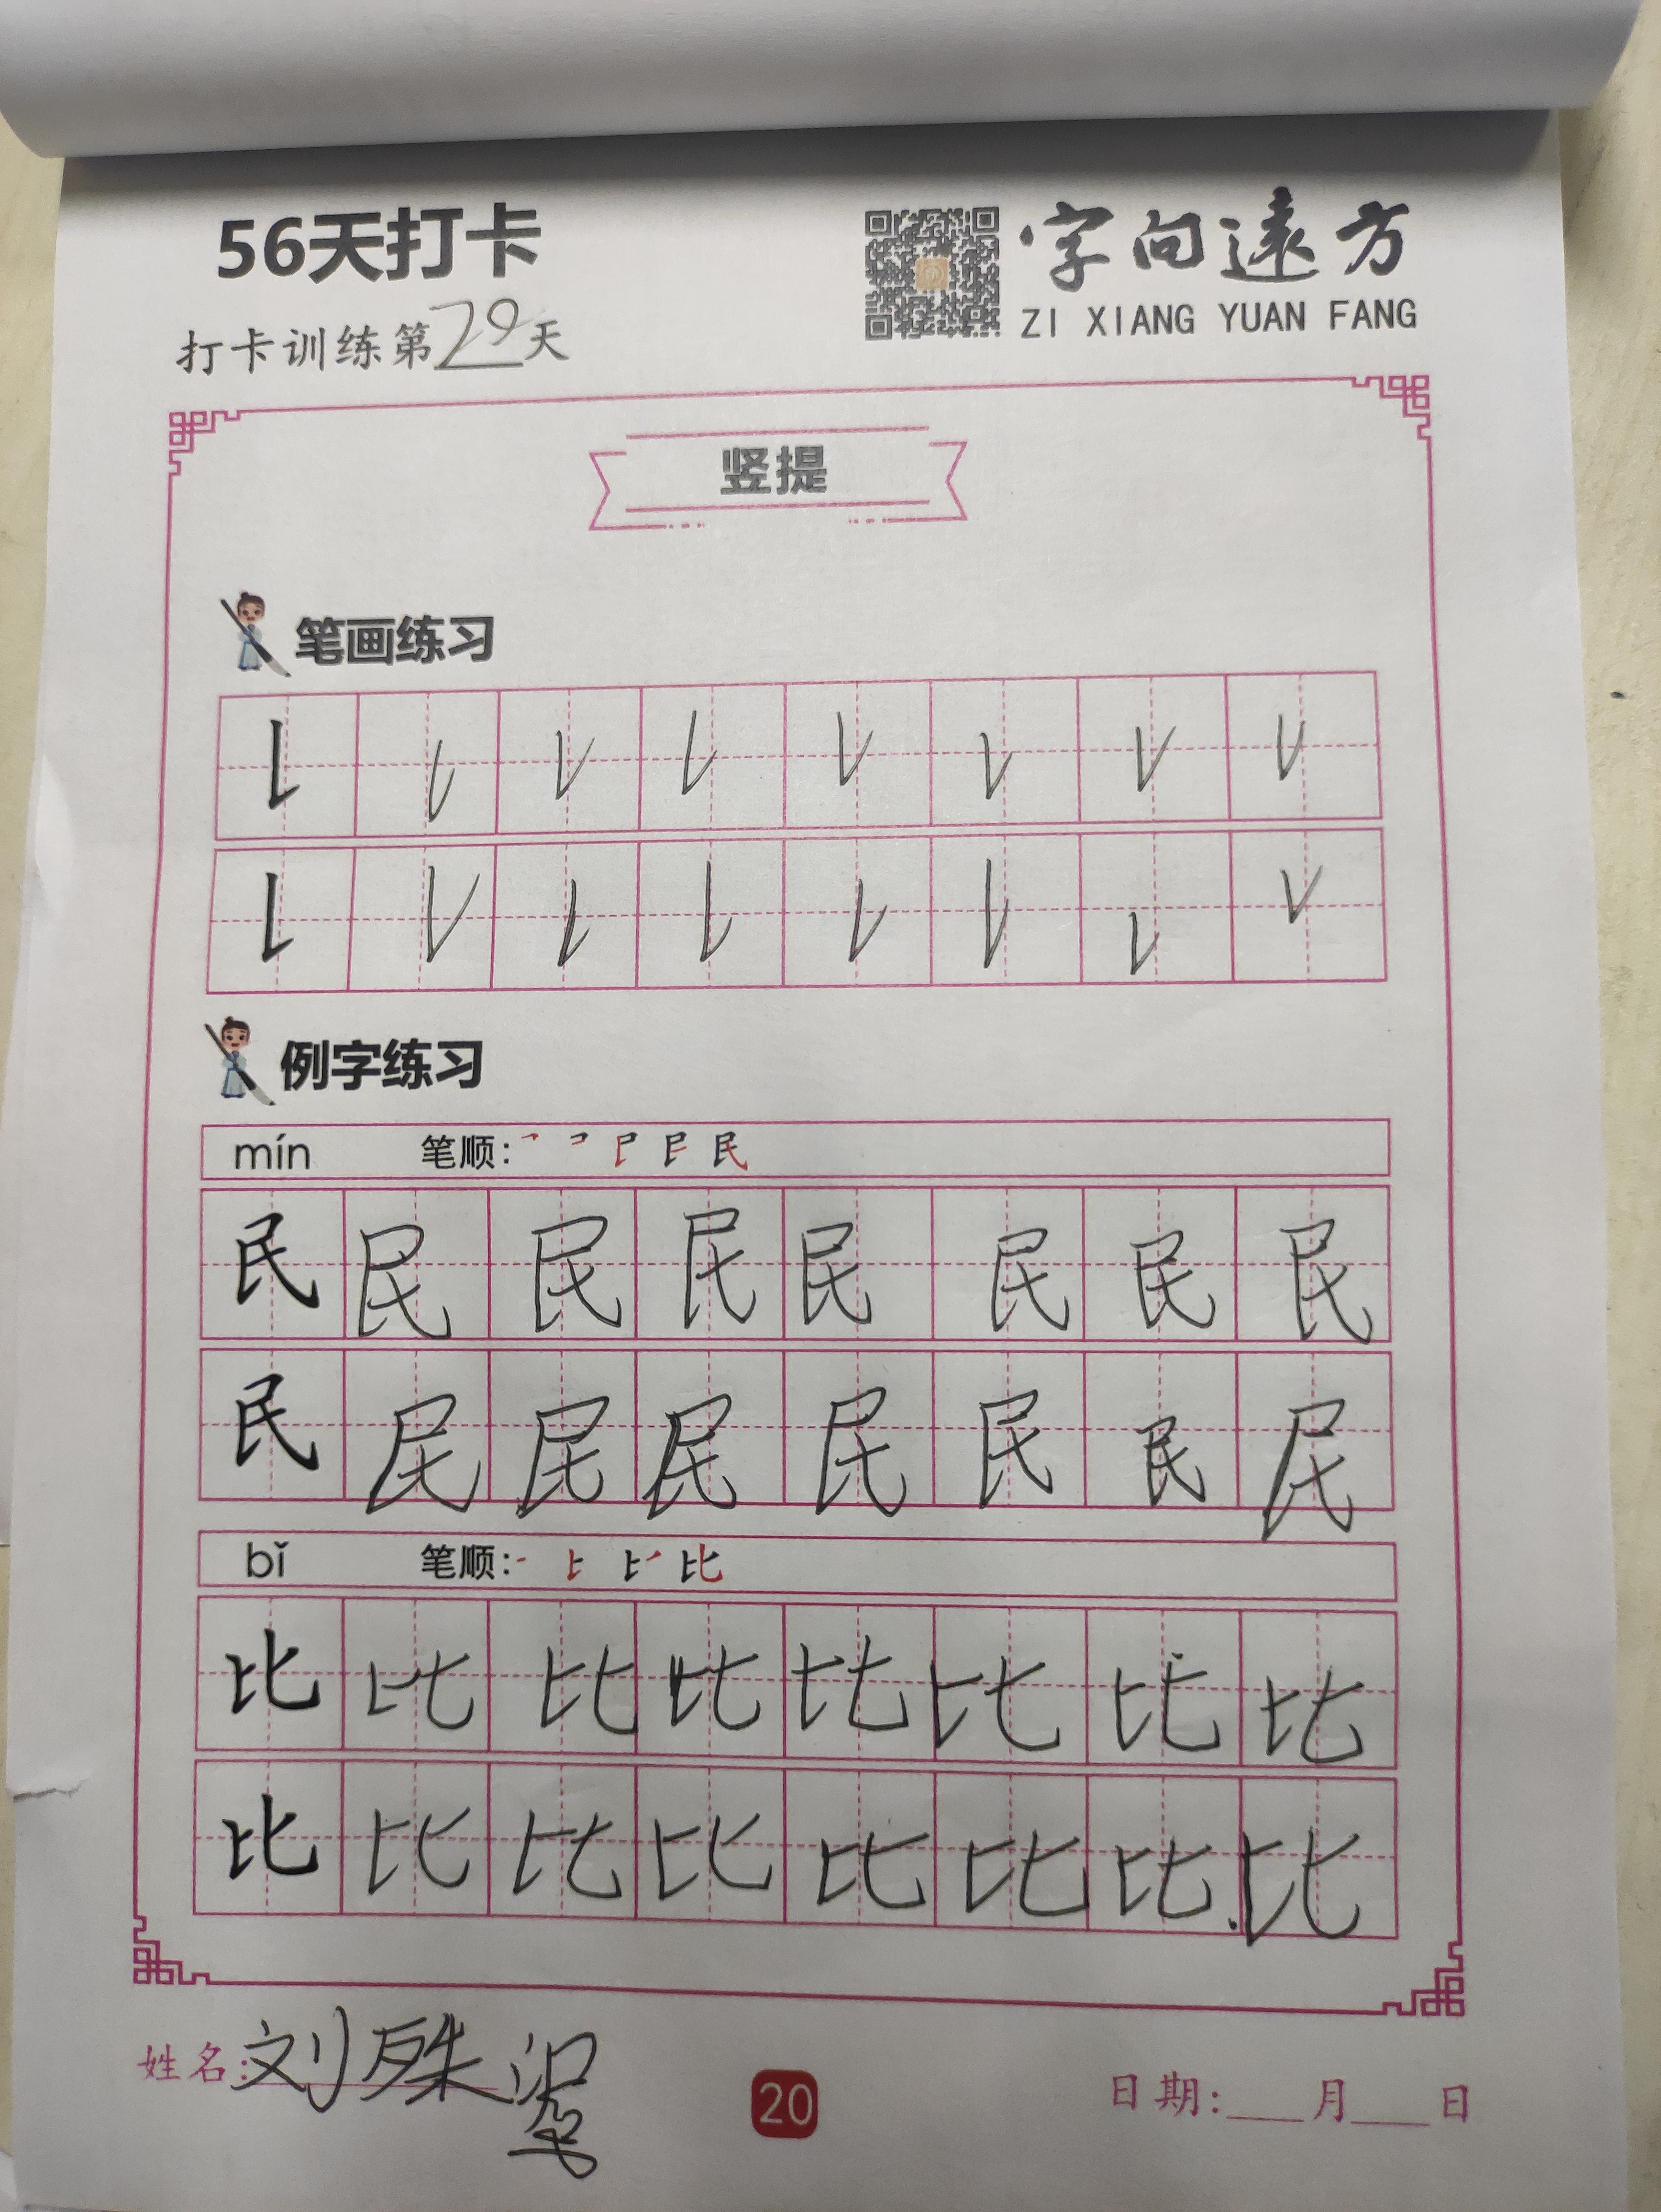 56天打卡
字向遠方
ZI XIANG YUAN FANG
打卡训练第29天
竖提
笔画练习
例字练习
mín 笔顺: 民
民 民 民 民 民 民 民 民
民 民 民 民 民 民 民 民
bǐ 笔顺: 比
比 比 比 比 比 比 比 比
比 比 比 比 比 比 比 比
姓名: 刘殊
20
日期: 月 日